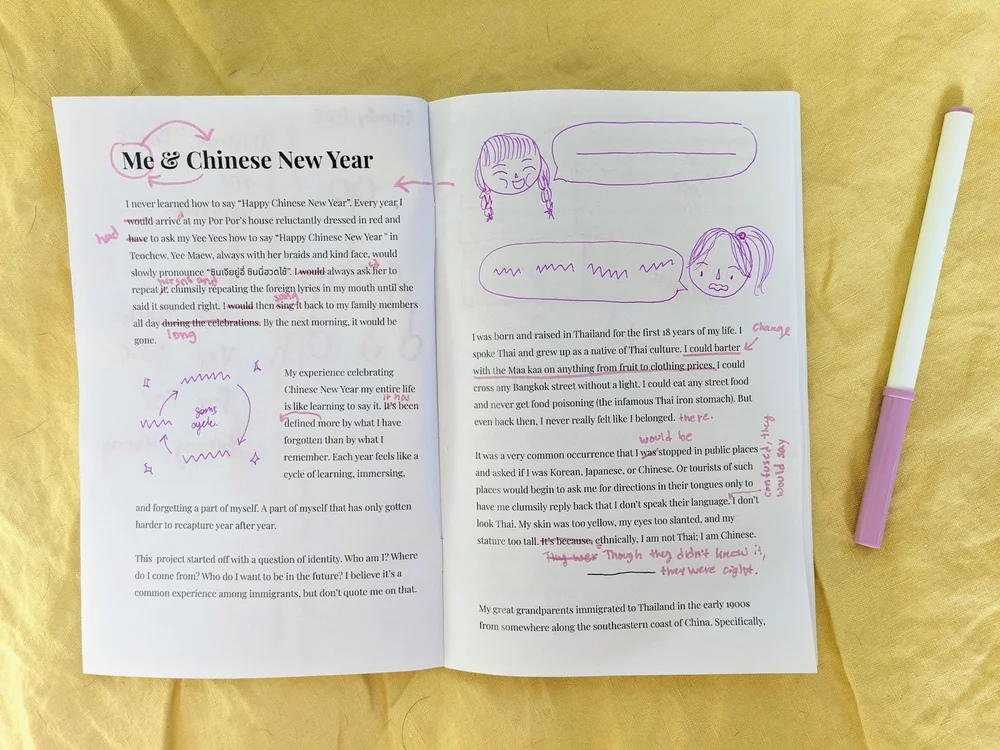 Me & Chinese New Year
I never learned how to say “Happy Chinese New Year”. Every year, I
would arrive at my Por Por's house reluctantly dressed in red and
had
have to ask my Yee Yees how to say “Happy Chinese New Year” in
Teochew. Yee Maew, always with her braids and kind face, would
slowly pronounce “ซินเจียยู่อี่ ซินนี้ฮวดใช้”. I would always ask her to
herself and
repeat it, clumsily repeating the foreign lyrics in my mouth until she
sang
said it sounded right. I would then sing it back to my family members
all day during the celebrations. By the next morning, it would be
long
gone.
My experience celebrating
Chinese New Year my entire life
it has
is like learning to say it. It's been
defined more by what I have
forgotten than by what I
remember. Each year feels like a
cycle of learning, immersing,
cycle.
and forgetting a part of myself. A part of myself that has only gotten
harder to recapture year after year.
This project started off with a question of identity. Who am I? Where
do I come from? Who do I want to be in the future? I believe it's a
common experience among immigrants, but don't quote me on that.
I was born and raised in Thailand for the first 18 years of my life. I
change
spoke Thai and grew up as a native of Thai culture. I could barter
with the Maa kaa on anything from fruit to clothing prices. I could
cross any Bangkok street without a light. I could eat any street food
and never get food poisoning (the infamous Thai iron stomach). But
even back then, I never really felt like I belonged. there.
would be
It was a very common occurrence that I was stopped in public places
and asked if I was Korean, Japanese, or Chinese. Or tourists of such
places would begin to ask me for directions in their tongues only to
have me clumsily reply back that I don't speak their language. I don't
confused, they
would say
look Thai. My skin was too yellow, my eyes too slanted, and my
stature too tall. It's because, ethnically, I am not Thai; I am Chinese.
They were Though they didn't know it,
they were right.
My great grandparents immigrated to Thailand in the early 1900s
from somewhere along the southeastern coast of China. Specifically,